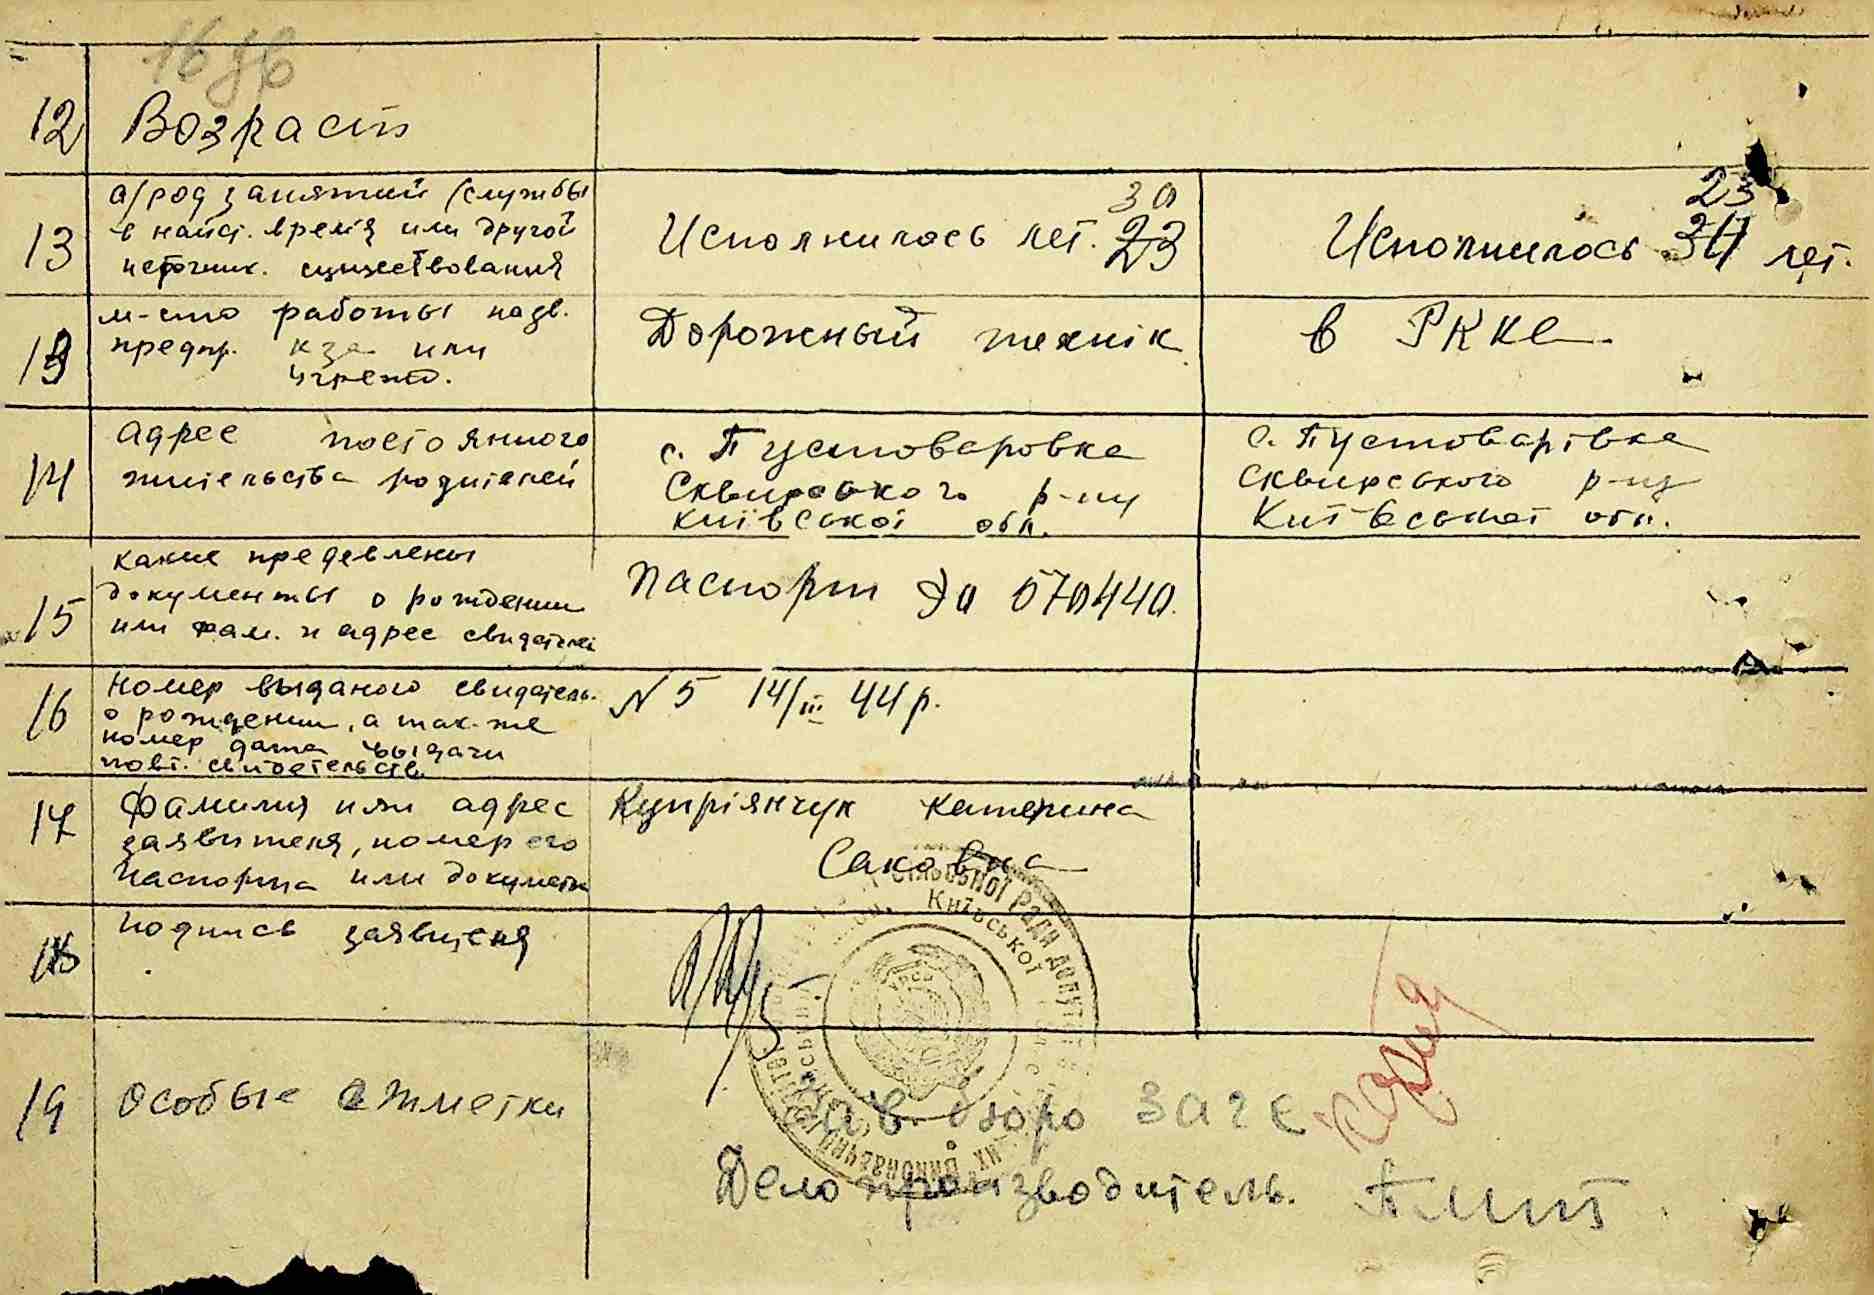 12 Возраст
13 а/род занятий (службы
в наст. время или другой
источник. существования
30
Исполнилось лет. 23
23
Исполнилось 34 лет.
13 м-сто работы назв.
предпр. или
учрежд.
Дорожный технік
в РККА
14 адрес постоянного
жительства родителей
с. Пустоваровка
Сквирського р-ну
Київської обл.
с. Пустоварівка
Сквирського р-ну
Київської обл.
15 какие предевлены
документы о рождении
или фам. и адрес свидетелей
Паспорт 570440.
16 Номер выданого свидетель.
о рождении, а так-же
номер дата выдачи
повт. свидетельств
N 5 14/III 44 р.
17 Фамилия или адрес
заявителя, номер его
паспорта или документа
Купріянчук Катерина
Саковна
18 подпись заявителя
сільської Ради депут
Київської
УРСР
19 Особые отметки
Зав. бюро загс
Делопроизводитель.
копия